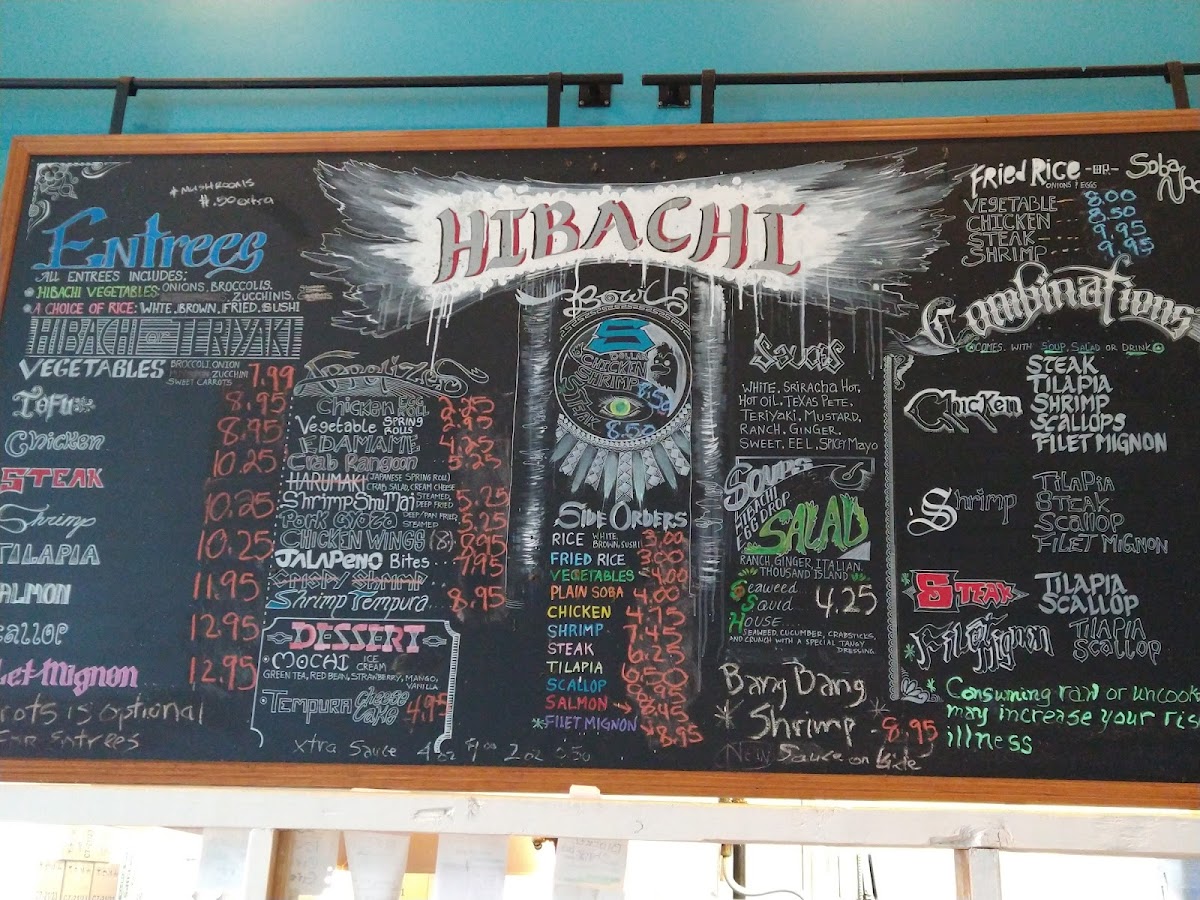 * MUSHROOMS
#.50 extra
Entrees
ALL ENTREES INCLUDES;
HIBACHI VEGETABLES: ONIONS, BROCCOLIS,
ZUCCHINIS,
A CHOICE OF RICE: WHTE, BROWN, FRIED, SUSHI
HIBACHI OR TERIYAKI
VEGETABLES BROCCOLI, ONION
ZUCCHINI
SWEET CARROTS 7.99
TOFU 8.95
Chicken 8.95
STEAK 10.25
Shrimp 10.25
TILAPIA 10.25
ALMON 11.95
callop 12.95
let Mignon 12.95
rots is optional
For Entrees
Appetizers
Chicken EGG ROLL 2.25
Vegetable SPRING ROLLS 2.95
EDAMAME 4.25
Crab Rangoon 5.25
HARUMAKI (JAPANESE SPRING ROLL)
CRAB SALAD, CREAM CHEESE
Shrimp ShuMai STEAMED, DEEP FRIED 5.25
Pork Gyoza DEEP/PAN FRIED, STEAMED 5.25
CHICKEN WINGS (8) 8.95
JALAPENO Bites 7.95
Crispy Shrimp
Shrimp Tempura 8.95
DESSERT
MOCHI ICE CREAM
GREEN TEA, RED BEAN, STRAWBERRY, MANGO,
VANILLA
TEMPURA Cheese Cake 4.95
xtra Sauce 4 oz $1.00 2 oz 0.50
HIBACHI
Bowls
8
DOLLAR
CHICKEN
SHRIMP 8.50
STEAK
8.50
SIDE ORDERS
RICE WHITE, BROWN, SUSHI 3.00
FRIED RICE 3.00
VEGETABLES 4.00
PLAIN SOBA 4.00
CHICKEN 4.75
SHRIMP 7.45
STEAK 6.25
TILAPIA 6.50
SCALLOP 8.95
SALMON 8.45
*FILET MIGNON 8.95
Sauces
WHITE, SRIRACHA HOT,
HOT OIL, TEXAS PETE,
TERIYAKI, MUSTARD,
RANCH, GINGER,
SWEET, EEL, SPICY Mayo
SOUPS
HIBACHI
EGG DROP
SALAD
RANCH, GINGER, ITALIAN,
THOUSAND ISLAND
Seaweed
Squid 4.25
House....
SEAWEED, CUCUMBER, CRABSTICKS,
AND CRUNCH WITH A SPECIAL TANGY
DRESSING.
Bang Bang
* Shrimp - 8.95
New Sauce on Side
FRIED RICE -OR- Soba Noo
ONIONS & EGGS
VEGETABLE 8.00
CHICKEN 8.50
STEAK 9.95
SHRIMP 9.95
Combinations
COMES WITH SOUP, SALAD OR DRINK
Chicken
STEAK
TILAPIA
SHRIMP
SCALLOPS
FILET MIGNON
Shrimp
TILAPIA
STEAK
SCALLOP
FILET MIGNON
*STEAK
TILAPIA
SCALLOP
*Filet Mignon
TILAPIA
SCALLOP
* Consuming raw or uncook
may increase your ris
illness